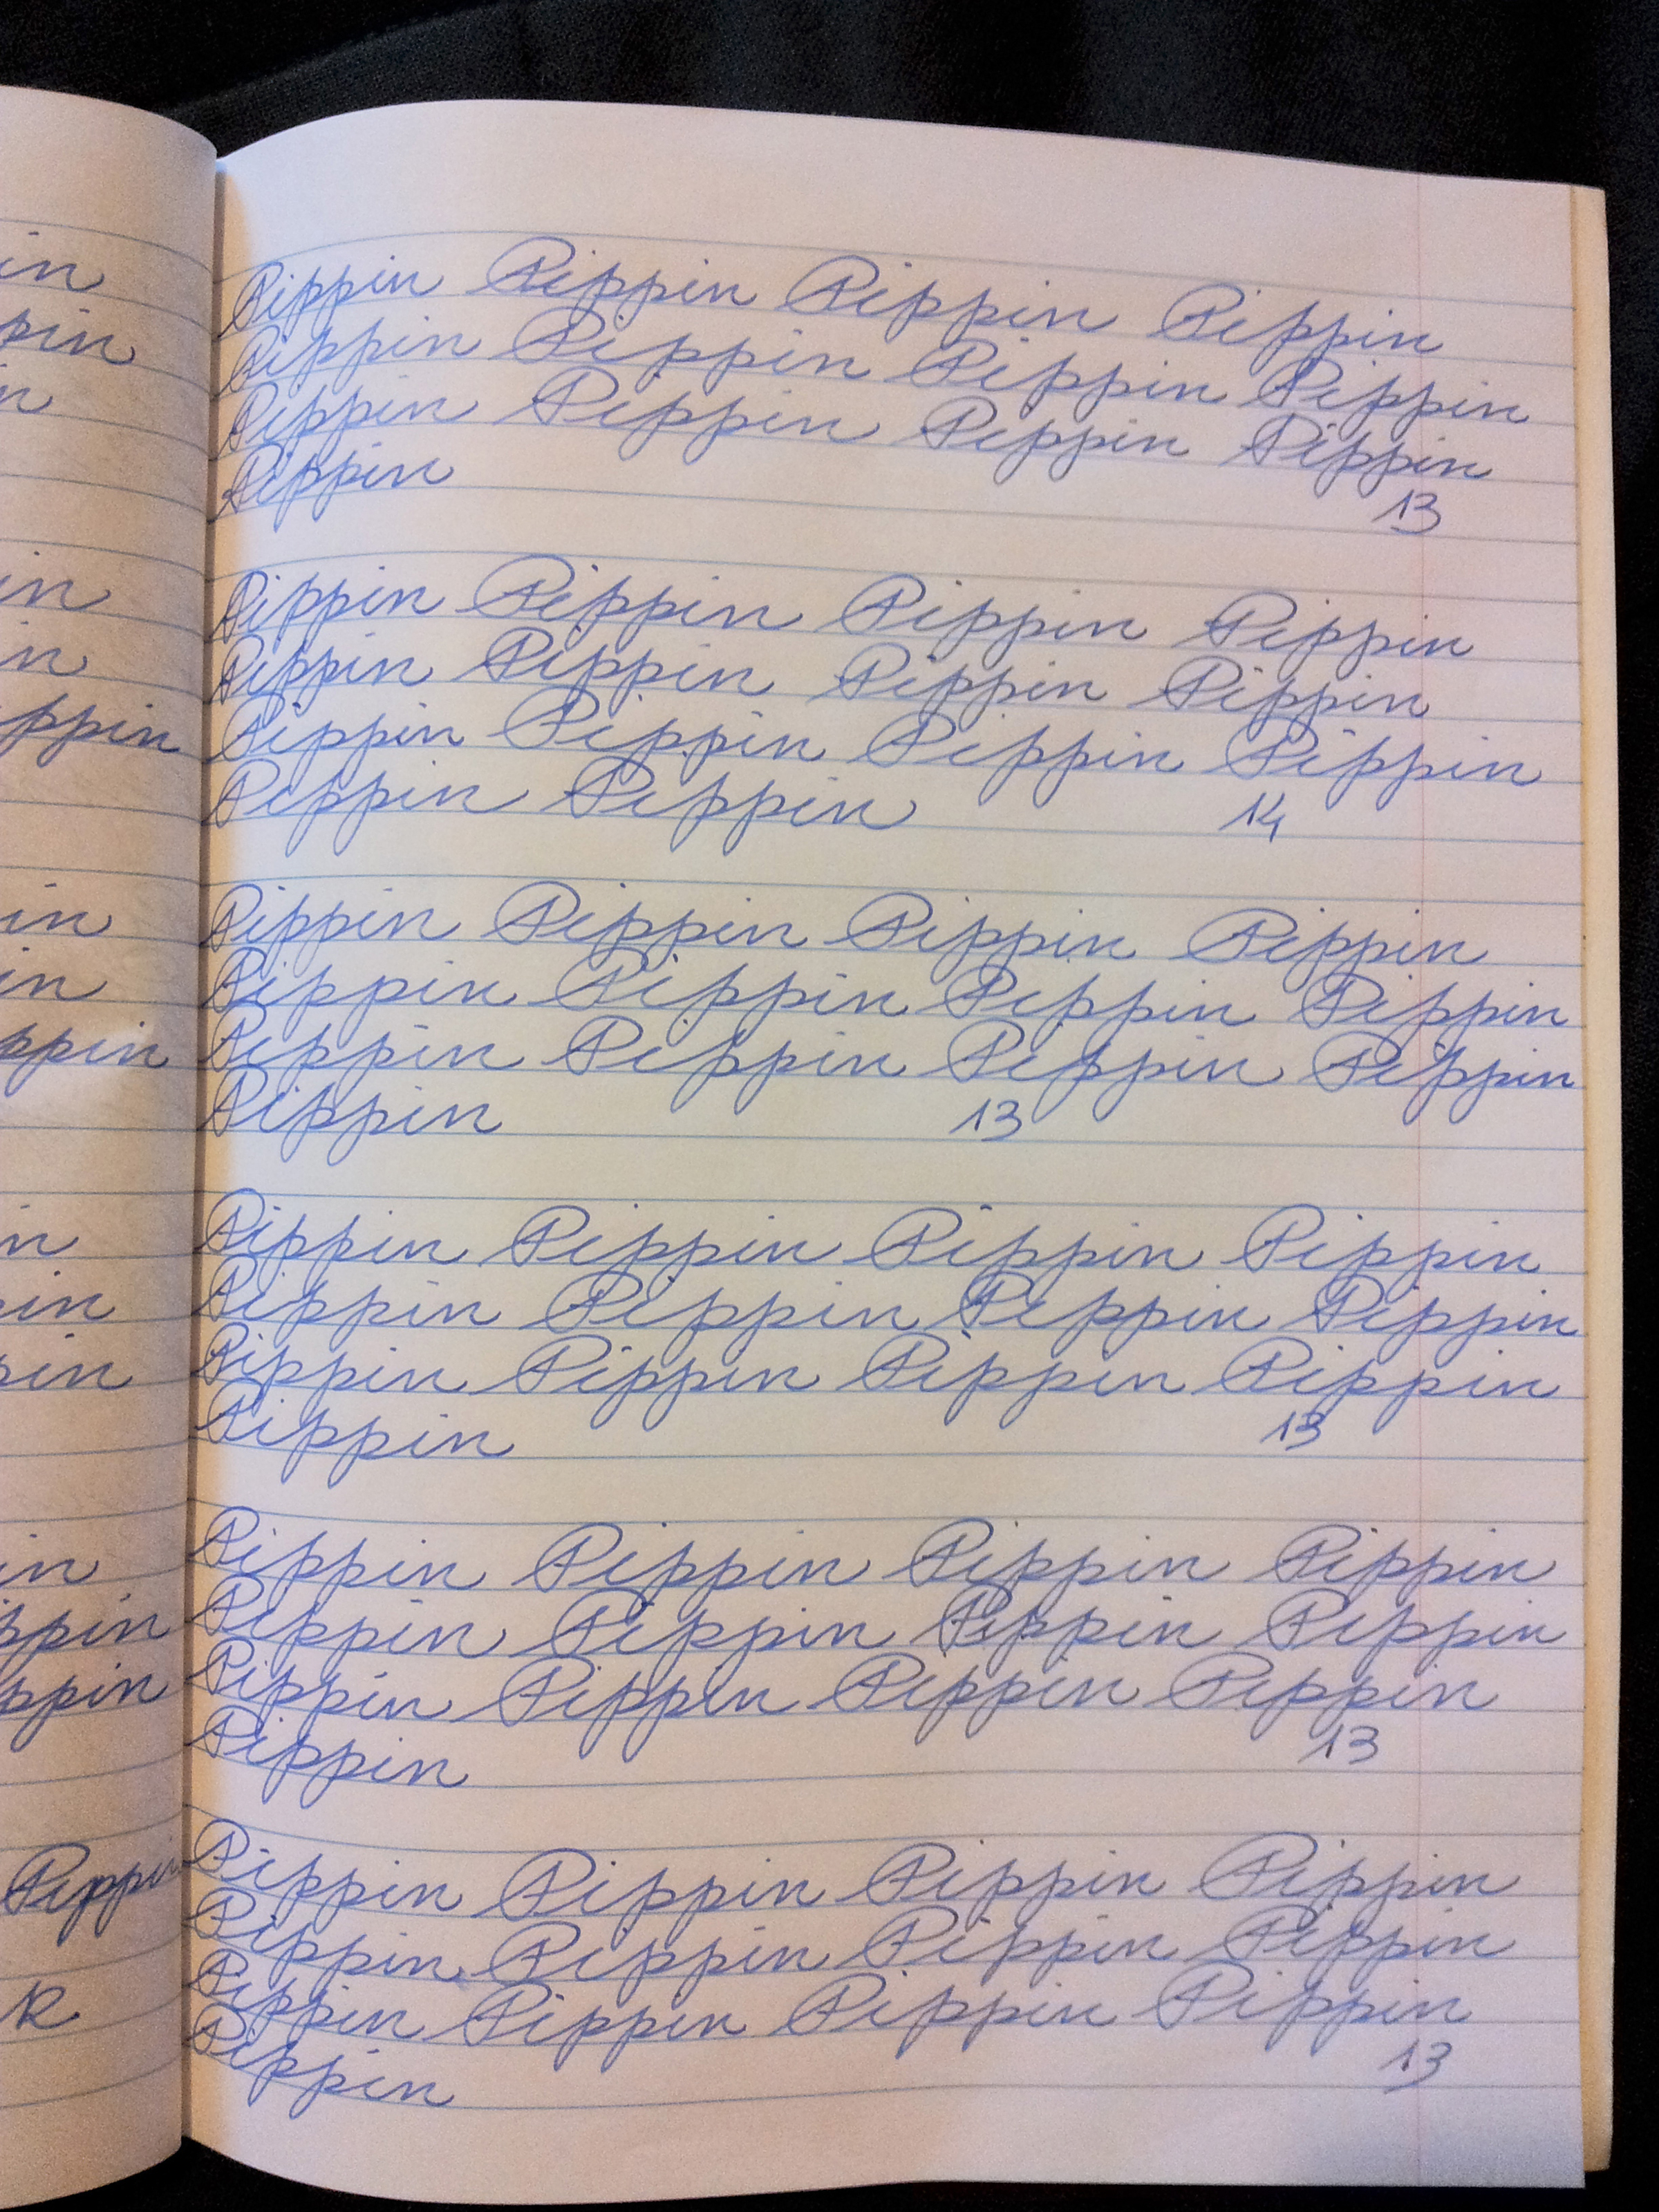 in
pin
n
in
in
ppin
in
in
ppin
in
in
pin
in
ppin
ppin
Pippin
R
Pippin Pippin Pippin Pippin
Pippin Pippin Pippin Pippin
Pippin Pippin Pippin Pippin
Pippin
13
Pippin Pippin Pippin Pippin
Pippin Pippin Pippin Pippin
Pippin Pippin Pippin Pippin
Pippin Pippin 14
Pippin Pippin Pippin Pippin
Pippin Pippin Pippin Pippin
Pippin Pippin Pippin Pippin
Pippin 13
Pippin Pippin Pippin Pippin
Pippin Pippin Pippin Pippin
Pippin Pippin Pippin Pippin
Pippin 13
Pippin Pippin Pippin Pippin
Pippin Pippin Pippin Pippin
Pippin Pippin Pippin Pippin
Pippin 13
Pippin Pippin Pippin Pippin
Pippin Pippin Pippin Pippin
Pippin Pippin Pippin Pippin
Pippin 13